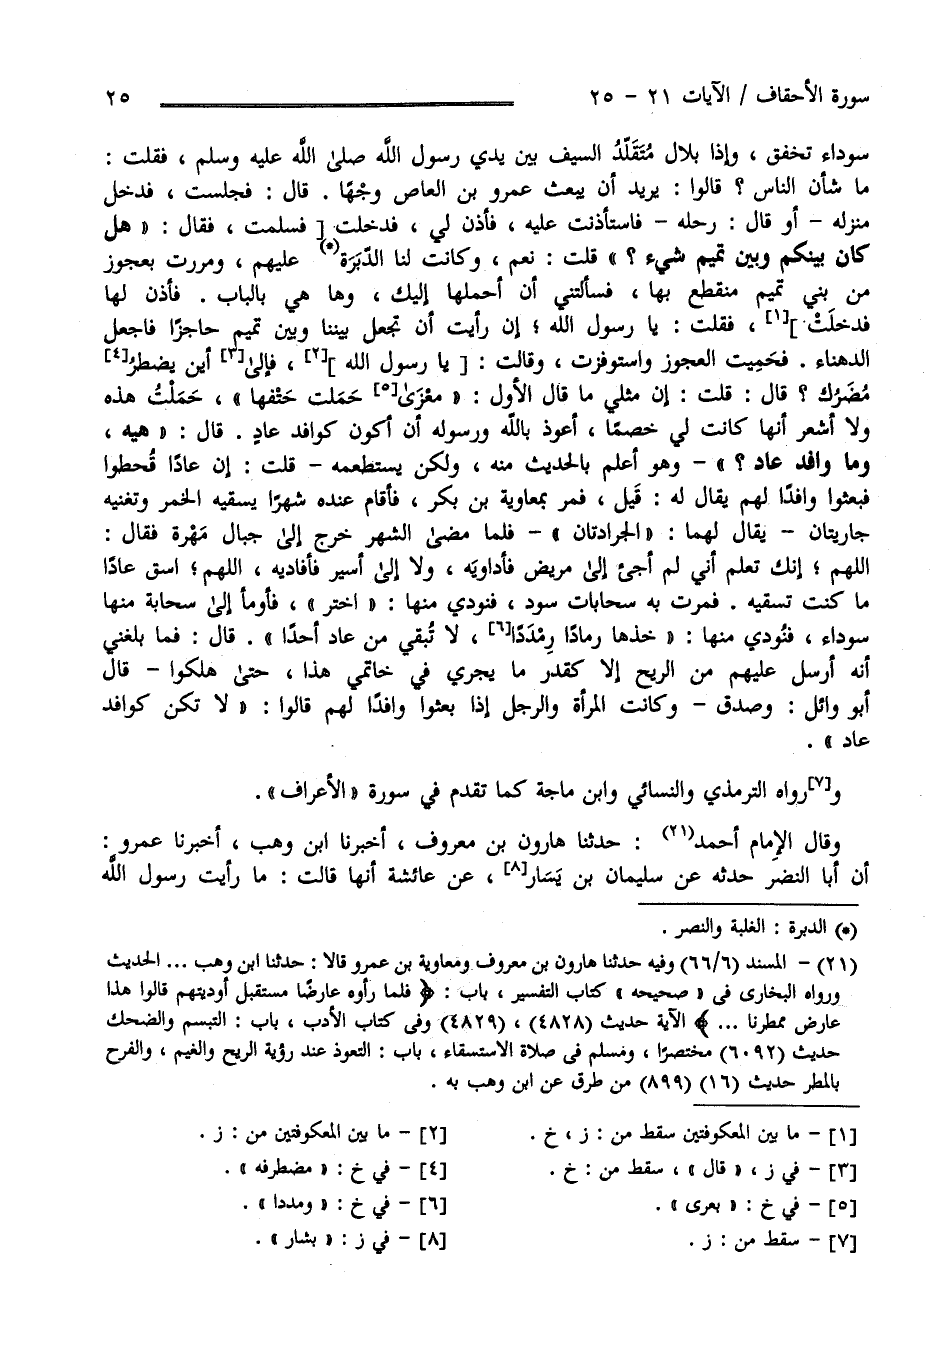 سورة الأحقاف / الآيات ٢١ - ٢٥ ٢٥
سوداء تخفق ، وإذا بلال مُتَقَلِّدُ السيف بين يدي رسول اللَّه صلىٰ اللَّه عليه وسلم ، فقلت :
ما شأن الناس ؟ قالوا : يريد أن يبعث عمرو بن العاص وجْهًا . قال : فجلست ، فدخل
منزله - أو قال : رحله - فاستأذنت عليه ، فأذن لي ، فدخلت [ فسلمت ، فقال : « هل
كان بينكم وبين تميم شيء ؟ » قلت : نعم ، وكانت لنا الدّبَرَة(*) عليهم ، ومررت بعجوز
من بني تميم منقطع بها ، فسألتني أن أحملها إليك ، وها هي بالباب . فأذن لها
فدخلَتْ ][١] ، فقلت : يا رسول الله ؛ إن رأيت أن تجعل بيننا وبين تميم حاجزًا فاجعل
الدهناء . فحَمِيت العجوز واستوفزت ، وقالت : [ يا رسول الله ][٢] ، فإلىٰ[٣] أين يضطرُ[٤]
مُضَرُك ؟ قال : قلت : إن مثلي ما قال الأول : « مغْزَىٰ[٥] حَمَلت حَتْفها » ، حَمَلْتُ هذه
ولا أشعر أنها كانت لي خصمًا ، أعوذ باللَّه ورسوله أن أكون كوافد عادٍ . قال : « هيه ،
وما وافد عاد ؟ » - وهو أعلم بالحديث منه ، ولكن يستطعمه - قلت : إن عادًا قُحطوا
فبعثوا وافدًا لهم يقال له : قَيل ، فمر بمعاوية بن بكر ، فأقام عنده شهرًا يسقيه الخمر وتغنيه
جاريتان - يقال لهما : «الجرادتان » - فلما مضىٰ الشهر خرج إلىٰ جبال مَهْرة فقال :
اللهم ؛ إنك تعلم أني لم أجئ إلىٰ مريض فأداويَه ، ولا إلىٰ أسير فأفاديه ، اللهم ؛ اسق عادًا
ما كنت تسقيه . فمرت به سحابات سود ، فنودي منها : « اختر » ، فأومأ إلىٰ سحابة منها
سوداء ، فنُودي منها : « خذها رمادًا رِمْدَدًا[٦] ، لا تُبقي من عاد أحدًا » . قال : فما بلغني
أنه أرسل عليهم من الريح إلا كقدر ما يجري في خاتمي هذا ، حتىٰ هلكوا - قال
أبو وائل : وصدق - وكانت المرأة والرجل إذا بعثوا وافدًا لهم قالوا : « لا تكن كوافد
عاد » .
و[٧]رواه الترمذي والنسائي وابن ماجة كما تقدم في سورة «الأعراف» .
وقال الإمام أحمد(٢١) : حدثنا هارون بن معروف ، أخبرنا ابن وهب ، أخبرنا عمرو :
أن أبا النضر حدثه عن سليمان بن يَسَار[٨] ، عن عائشة أنها قالت : ما رأيت رسول اللَّه
(*) الدبرة : الغلبة والنصر .
(٢١) - المسند (٦٦/٦) وفيه حدثنا هارون بن معروف ومعاوية بن عمرو قالا : حدثنا ابن وهب ... الحديث
ورواه البخارى فى « صحيحه » كتاب التفسير ، باب : ﴿ فلما رأوه عارضًا مستقبل أوديتهم قالوا هذا
عارض ممطرنا ... ﴾ الآية حديث (٤٨٢٨) ، (٤٨٢٩) وفى كتاب الأدب ، باب : التبسم والضحك
حديث (٦٠٩٢) مختصرًا ، ومسلم فى صلاة الاستسقاء ، باب : التعوذ عند رؤية الريح والغيم ، والفرح
بالمطر حديث (١٦) (٨٩٩) من طرق عن ابن وهب به .
[١] - ما بين المعكوفتين سقط من : ز ، خ . [٢] - ما بين المعكوفتين من : ز .
[٣] - في ز ، « قال » ، سقط من : خ . [٤] - في خ : « مضطرفه » .
[٥] - في خ : « بعرى » . [٦] - في خ : « ومددا » .
[٧] - سقط من : ز . [٨] - في ز : « بشار » .